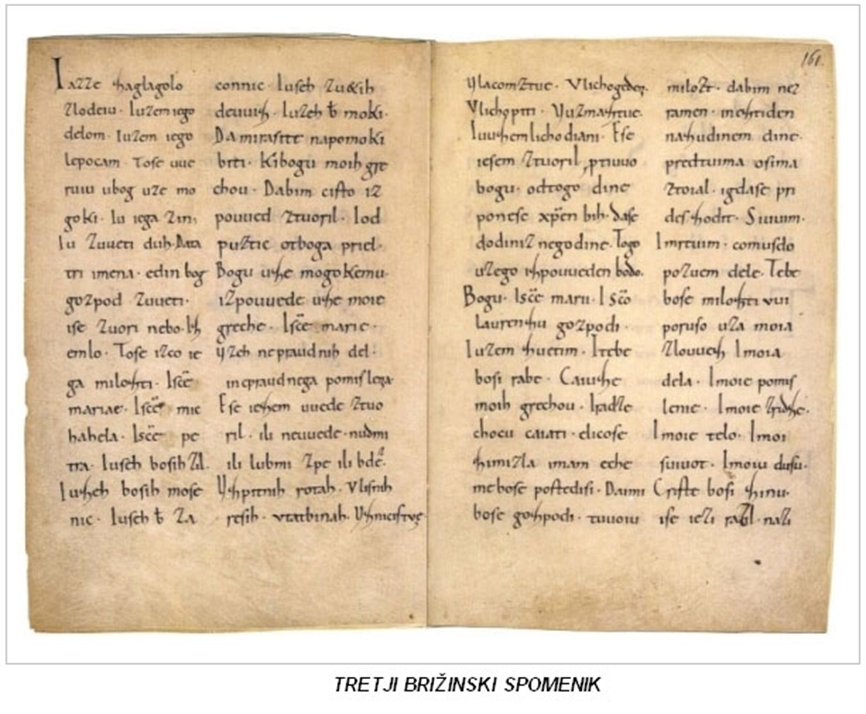 161.
Iazze zaglagolo
zlodeiu · Iuzem iego
delom · Iuzem iego
lepocam · Tose uue
ruiu ubog uze mo
goki · Iu iega zin;
Iu zuueti duh · Data
tri imena · edin bog
gozpod zuueti ·
ise zuori nebo · Iz
emlo · Tose izco ie
ga milozti · Iscē
mariae · Iscē mic
hahela · Iscē pe
tra · Iuseh bosih zil ·
Iuzeh bosih mose
nic · Iuseh ƀ za
connic Iuseh zu&ih
deuuiz · Iuzeh ƀ moki ·
Da mi rasite napomoki
biti · Ki bogu moih gre
chou · Dabim cisto iz
pouued ztuoril · Iod
puztic otboga priel ·
Bogu uze mogokemu ·
izpouuede uze moie
greche · Iscē marie ·
uzeh nepraudnih del ·
inepraudnega pomislega
Ese iezem uuede ztuo
ril · ili neuuede · nudmi
ili lubmi zpe ili bdē
Uzpitnih rotah · Vlisnih
resih · vtatbinah · Uznicistue
Vlacomztue · Vlichogedeṇ
Vlichopiti · Vuzmaztue ·
Iuuzem lichodiani · Ese
iesem ztuoril ptiuuo
bogu · odtogo dine
ponese xpēn bih · dase
dodiniz negodine · Togo
uzego izpouueden bodo ·
Bogu · Iscē marii · I Scō
laurenzu gozpodi ·
Iuzem zuetim · Itebe
bosi rabe · Caiuze
moih grechou · Iradze
chocu caiati · elicose
zimizla imam eche
me bose postedisi · Daimi
bose gozpodi · tuuoiu
milozt · dabim nez
ramen · ineztiden
nazudinem dine ·
predtuima osima
ztoial · igdase pri
des zodit · Siuuim ·
Imrtuim · comusdo
pozuem dele · Tebe
bose miloztiuui
poruso uza moia
zlouuez Imoia
dela · Imoie pomis
lenie · Imoie zridze ·
Imoie telo · Imoi
siuuot · Imoiu dusu ·
Criste bosi zinu ·
ise iezi razil nazi
TRETJI BRIŽINSKI SPOMENIK